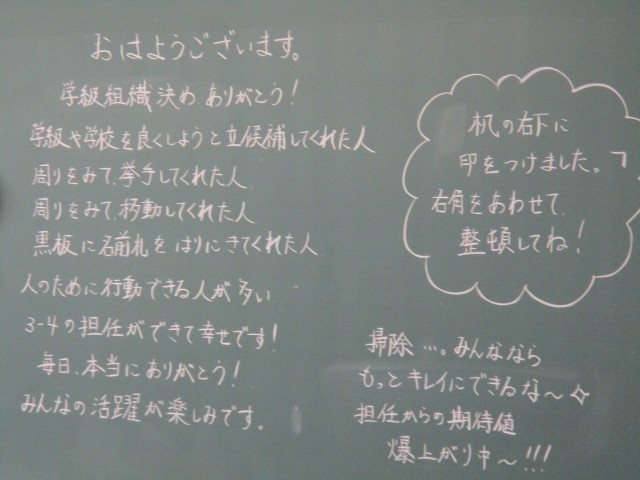 おはようございます。
学級組織決め、ありがとう！
学級や学校を良くしようと立候補してくれた人
周りをみて、挙手してくれた人
周りをみて、移動してくれた人
黒板に名前札をはりにきてくれた人
人のために行動できる人が多い
3-4の担任ができて幸せです！
毎日、本当にありがとう！
みんなの活躍が楽しみです。
机の右下に
印をつけました。 ┐
右角をあわせて、
整頓してね！
掃除…。みんななら
もっとキレイにできるな〜✧
担任からの期待値
爆上がり中〜!!!